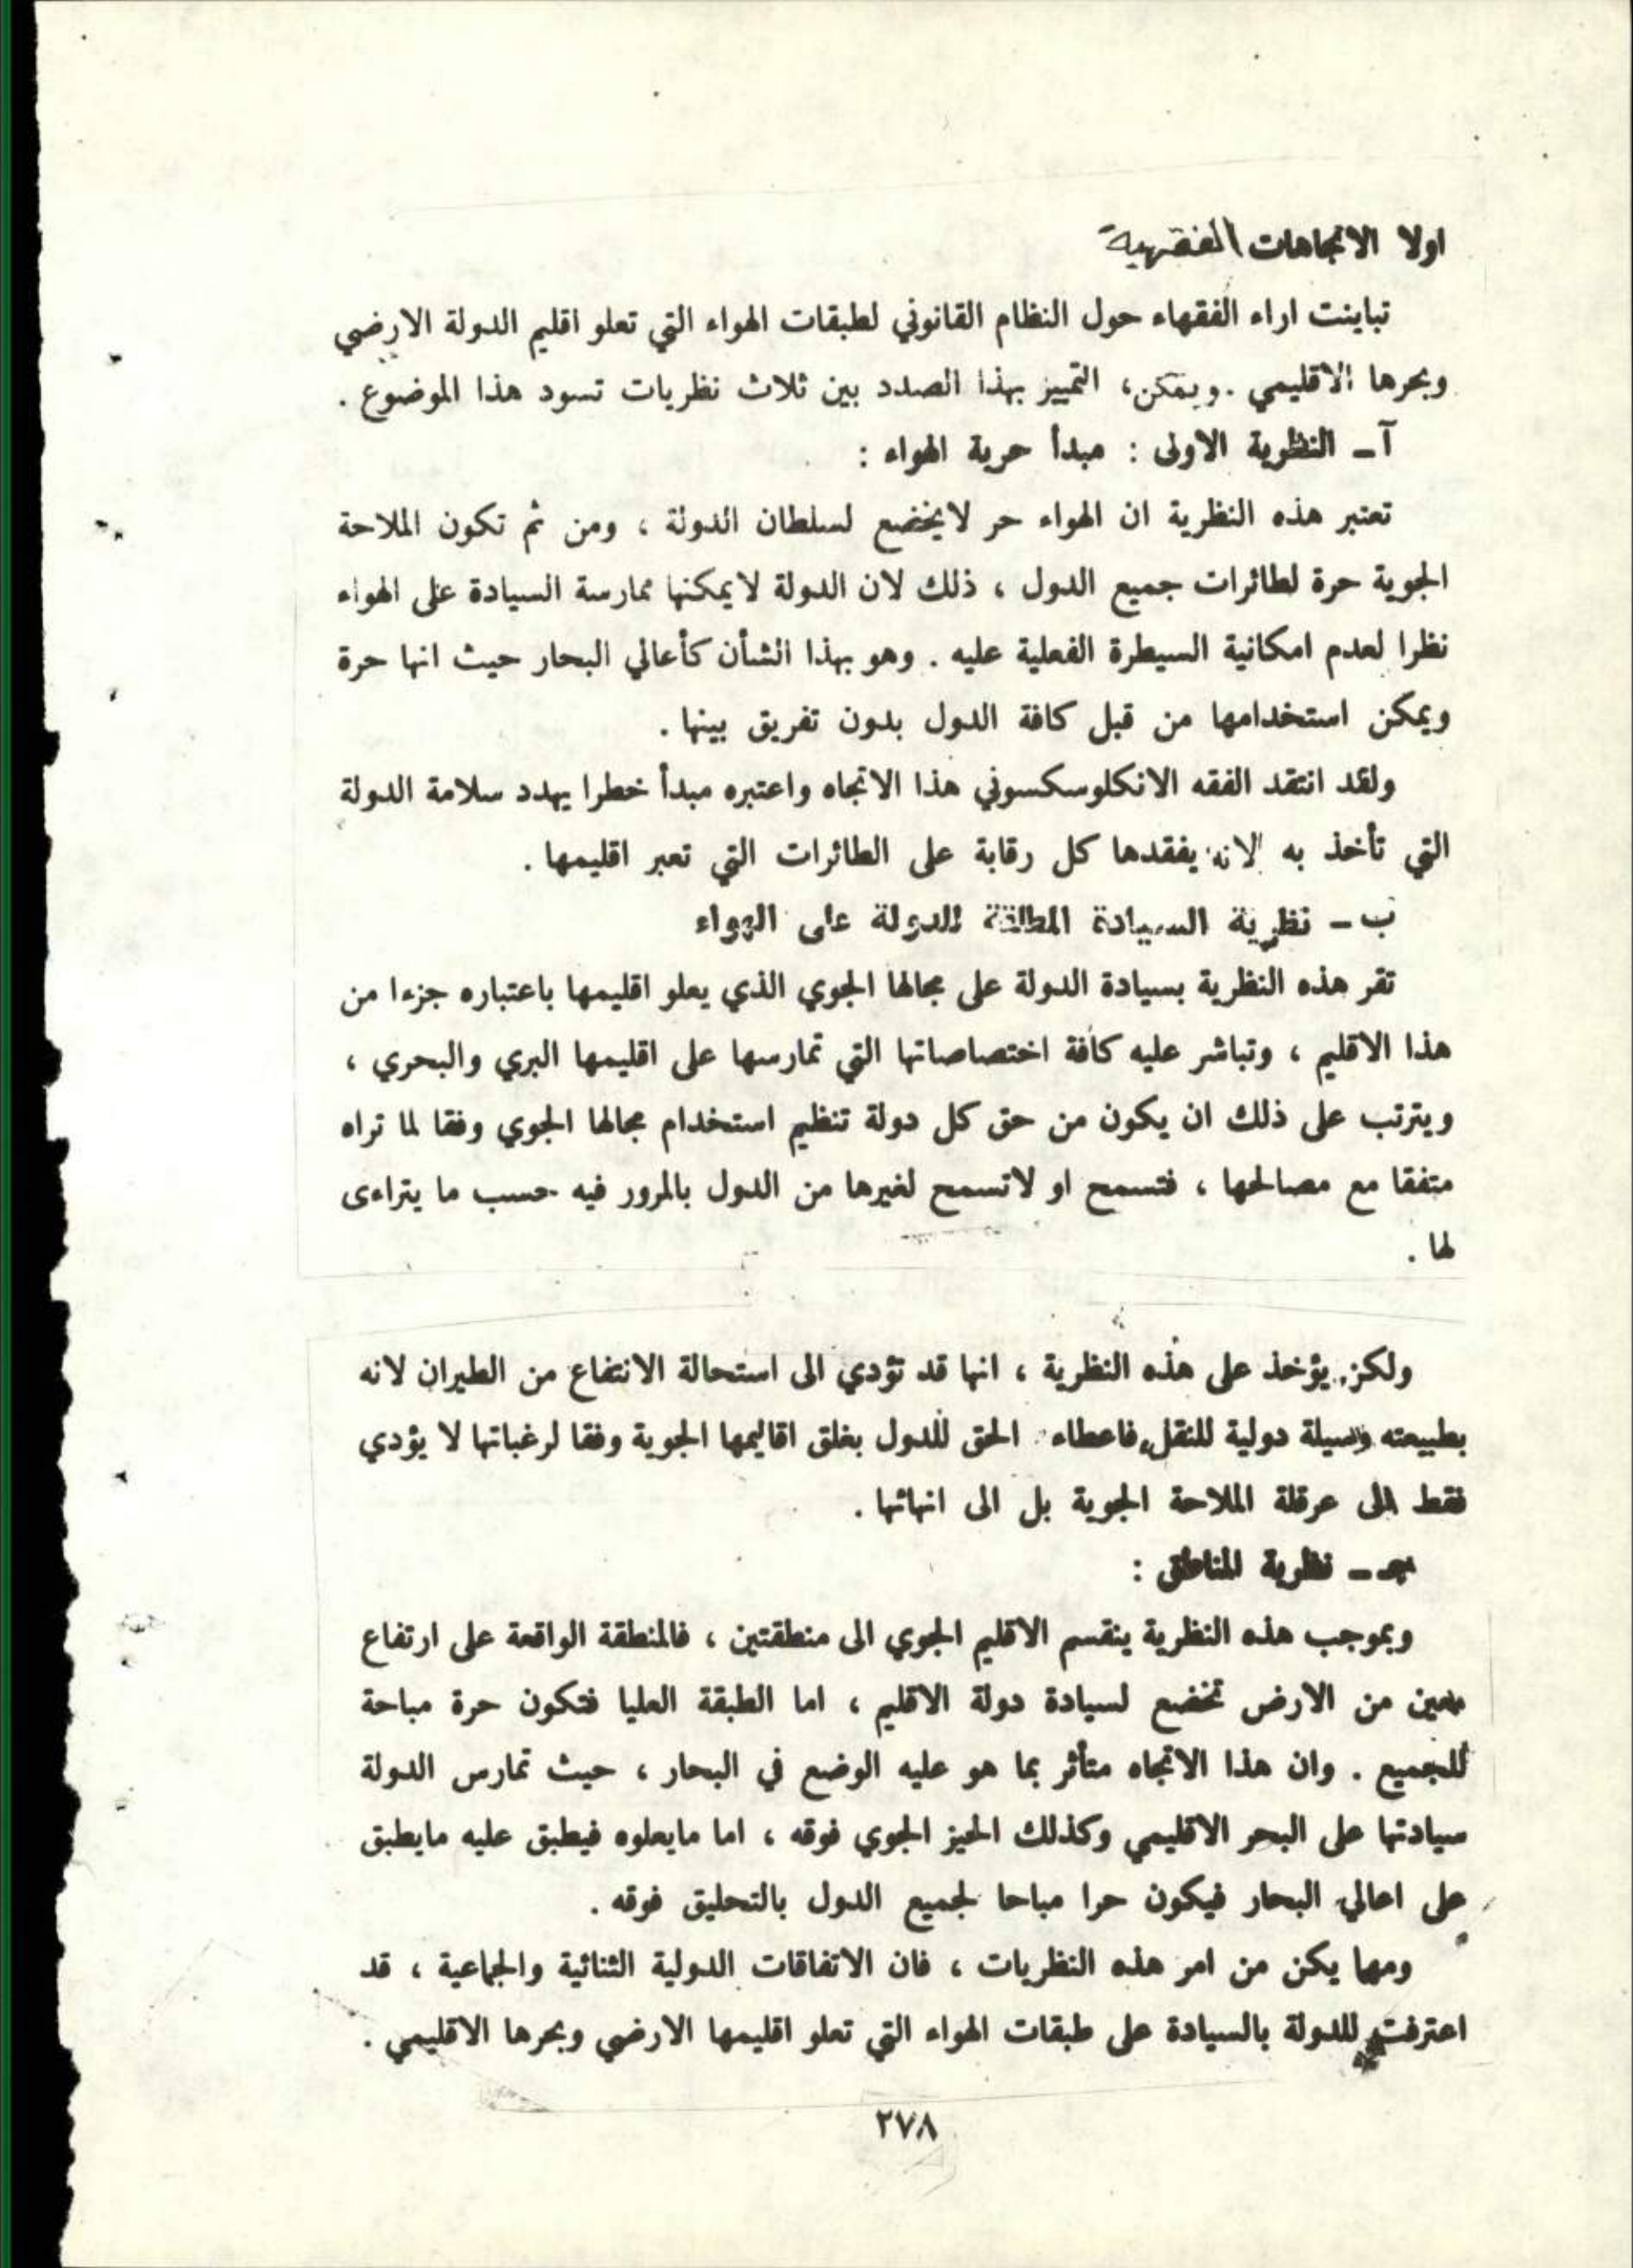 اولا الاتجاهات الفقهية
تباينت اراء الفقهاء حول النظام القانوني لطبقات الهواء التي تعلو اقليم الدولة الارضي
وبحرها الاقليمي . ويمكن، التمييز بهذا الصدد بين ثلاث نظريات تسود هذا الموضوع .
آ ـ النظرية الاولى : مبدأ حرية الهواء :
تعتبر هذه النظرية ان الهواء حر لايخضع لسلطان الدولة ، ومن ثم تكون الملاحة
الجوية حرة لطائرات جميع الدول ، ذلك لان الدولة لايمكنها ممارسة السيادة على الهواء
نظرا لعدم امكانية السيطرة الفعلية عليه . وهو بهذا الشأن كأعالي البحار حيث انها حرة
ويمكن استخدامها من قبل كافة الدول بدون تفريق بينها .
ولقد انتقد الفقه الانكلوسكسوني هذا الاتجاه واعتبره مبدأ خطرا يهدد سلامة الدولة
التي تأخذ به لانه يفقدها كل رقابة على الطائرات التي تعبر اقليمها .
ب ـ نظرية السيادة المطلقة للدولة على الهواء
تقر هذه النظرية بسيادة الدولة على مجالها الجوي الذي يعلو اقليمها باعتباره جزءا من
هذا الاقليم ، وتباشر عليه كافة اختصاصاتها التي تمارسها على اقليمها البري والبحري ،
ويترتب على ذلك ان يكون من حق كل دولة تنظيم استخدام مجالها الجوي وفقا لما تراه
متفقا مع مصالحها ، فتسمح او لاتسمح لغيرها من الدول بالمرور فيه حسب ما يتراءى
لها .
ولكن يؤخذ على هذه النظرية ، انها قد تؤدي الى استحالة الانتفاع من الطيران لانه
بطبيعته وسيلة دولية للنقل، فاعطاء الحق للدول بغلق اقاليمها الجوية وفقا لرغباتها لا يؤدي
فقط الى عرقلة الملاحة الجوية بل الى انهائها .
جـ ـ نظرية المناطق :
وبموجب هذه النظرية ينقسم الاقليم الجوي الى منطقتين ، فالمنطقة الواقعة على ارتفاع
معين من الارض تخضع لسيادة دولة الاقليم ، اما الطبقة العليا فتكون حرة مباحة
للجميع . وان هذا الاتجاه متأثر بما هو عليه الوضع في البحار ، حيث تمارس الدولة
سيادتها على البحر الاقليمي وكذلك الحيز الجوي فوقه ، اما مايعلوه فيطبق عليه مايطبق
على اعالي البحار فيكون حرا مباحا لجميع الدول بالتحليق فوقه .
ومهما يكن من امر هذه النظريات ، فان الاتفاقات الدولية الثنائية والجماعية ، قد
اعترفت للدولة بالسيادة على طبقات الهواء التي تعلو اقليمها الارضي وبحرها الاقليمي .
٢٧٨